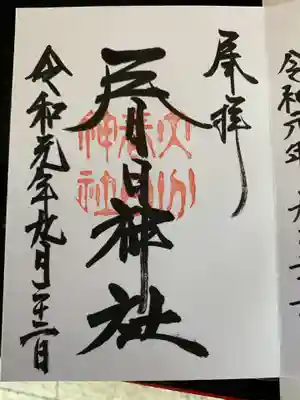 奉拝
春日神社
神社
令和元年九月二十二日
令和元年